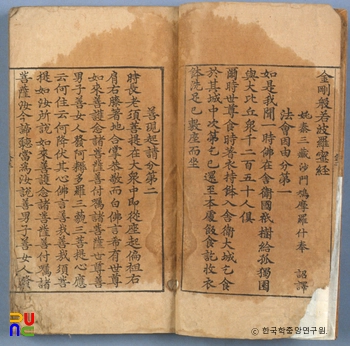 金剛般若波羅蜜經
姚秦三藏沙門鳩摩羅什奉 詔譯
法會因由分第一
如是我聞一時佛在舍衛國祇樹給孤獨園
與大比丘衆千二百五十人俱
爾時世尊食時著衣持鉢入舍衛大城乞食
於其城中次第乞已還至本處飯食訖收衣
鉢洗足已敷座而坐
善現起請分第二
時長老須菩提在大衆中即從座起偏袒右
肩右膝著地合掌恭敬而白佛言希有世尊
如來善護念諸菩薩善付囑諸菩薩世尊善
男子善女人發阿耨多羅三藐三菩提心應
云何住云何降伏其心佛言善哉善哉須菩
提如汝所說如來善護念諸菩薩善付囑諸
菩薩汝今諦聽當爲汝說善男子善女人發
© 한국학중앙연구원